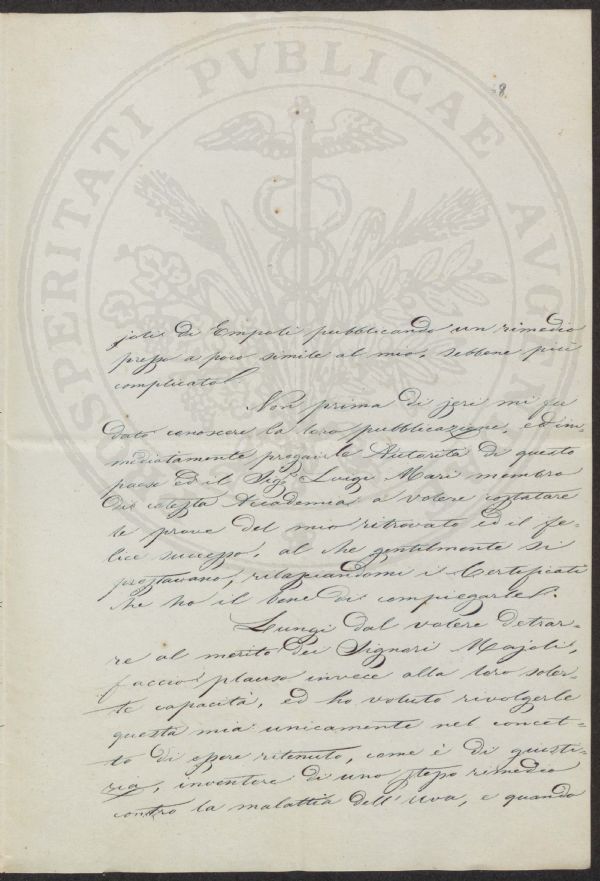 PROSPERITATI PVBLICAE AVGENDAE
8
joli di Empoli pubblicando un rimedio
presso a poco simile al mio, sebbene più
complicato.
Non prima di jeri mi fu
dato conoscere la loro pubblicazione, ed im=
mediatamente pregai le Autorità di questo
paese ed il Sig.r Luigi Mari membro
di cotesta Accademia a volere costatare
le prove del mio ritrovato ed il fe=
lice successo, al che gentilmente si
prestavano, rilasciandomi i Certificati
che ho il bene di compiegarle.
Lungi dal volere detrar=
re al merito dei Signori Majoli,
faccio plauso invece alla loro soler=
te capacità, ed ho voluto rivolgerle
questa mia unicamente nel concet=
to di essere ritenuto, come è di giusti=
zia, inventore di uno stesso rimedio
contro la malattia dell'uva, e quando